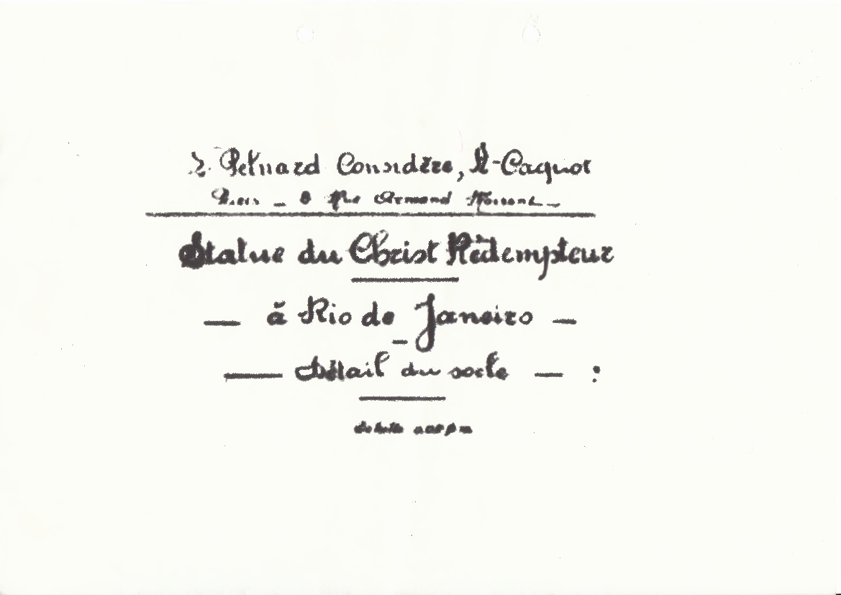 Pelnard Considère, & Caquot
Paris _ 8 Rue Armand Moisant _
Statue du Christ Rédempteur
— à Rio de Janeiro —
— Détail du socle — :
Echelle